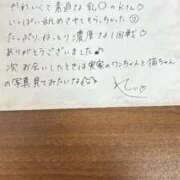 やわらくて素直な乳〇のKさん
いっぱい舐めさせてもらっちゃった
たっぷりねっとり濃厚な1回戦♡
ありがとうございました♪
次お会いしたときは実家のワンちゃんと猫ちゃん
の写真見てみたいな